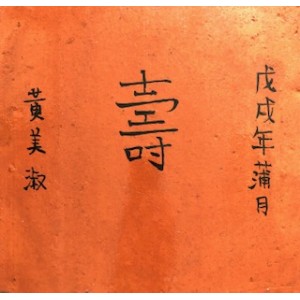 戊戌年蒲月
壽
黃美淑